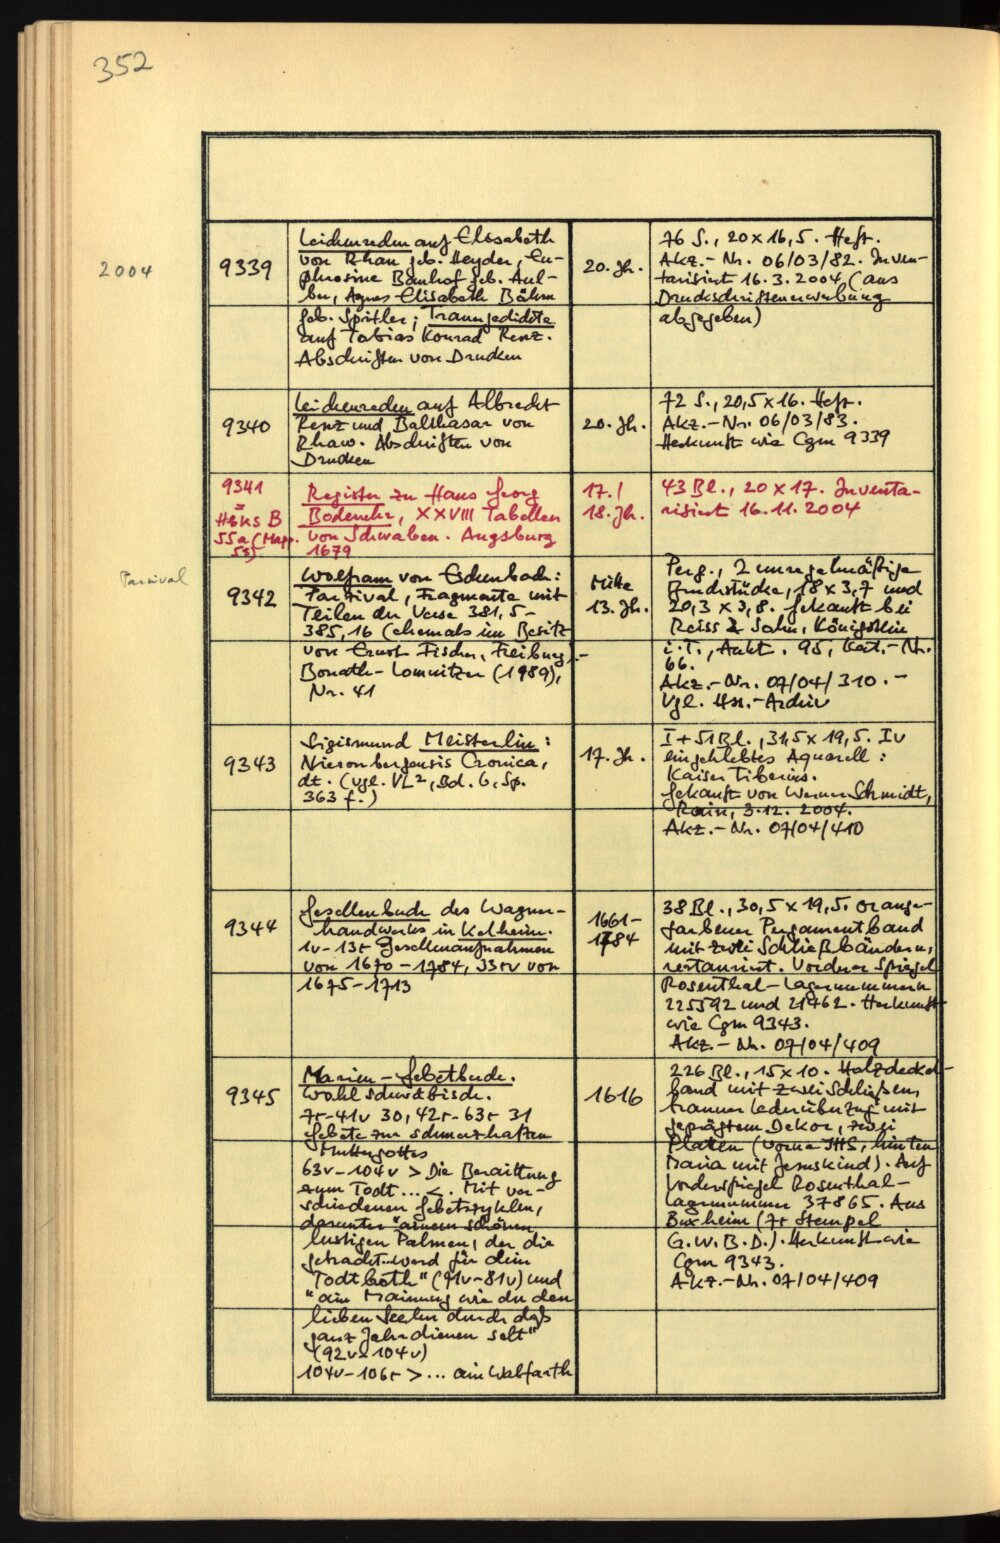 352
2004
9339
Leichenreden auf Elisabeth
von Rhau geb. Heyder, Eu-
phrosine Bauhof geb. Aul-
ber, Agnes Elisabeth Böhm
geb. Spitler; Trauergedichte
auf Tobias Konrad Renz.
Abschriften von Drucken
20. Jh.
76 S., 20 x 16,5. Heft.
Akz.-Nr. 06/03/82. Inven-
tarisiert 16.3.2004 (aus
Druckschriftenerwerbung
abgegeben)
9340
Leichenreden auf Albrecht
Renz und Balthasar von
Rhaw. Abschriften von
Drucken
20. Jh.
72 S., 20,5 x 16. Heft.
Akz.-Nr. 06/03/83.
Herkunft wie Cgm 9339
9341
=
Hbks B
55a (Mapp.
55)
Register zu Hans Georg
Bodenehr, XXVIII Tabellen
von Schwaben. Augsburg
1679
17./
18. Jh.
43 Bl., 20 x 17. Inventa-
risiert 16.11.2004
Parzival
9342
Wolfram von Eschenbach:
Parzival, Fragmente mit
Teilen der Verse 381,5-
385,16 (ehemals im Besitz
von Ernst Fischer, Freiburg).-
Bonath-Lomnitzer (1989),
Nr. 41
Mitte
13. Jh.
Perg., 2 unregelmäßige
Bruchstücke, 18 x 3,7 und
20,3 x 3,8. Gekauft bei
Reiss & Sohn, Königstein
i.T., Aukt. 95, Kat.-Nr.
66.
Akz.-Nr. 07/04/310.-
Vgl. Hss.-Archiv
9343
Sigismund Meisterlin:
Nieronbergensis Cronica,
dt. (vgl. VL², Bd. 6, Sp.
363 f.)
17. Jh.
I + 51 Bl., 31,5 x 19,5. Iv
eingeklebtes Aquarell:
Kaiser Tiberius.
Gekauft von Werner Schmidt,
Rain, 3.12.2004.
Akz.-Nr. 07/04/410
9344
Gesellenbuch des Wagner-
handwerks in Kelheim.
1v-13r Gesellenaufnahmen
von 1670-1784, 33rv von
1675-1713
1661-
1784
38 Bl., 30,5 x 19,5. Orange-
farbener Pergamentband
mit zwei Schließbändern,
restauriert. Vorderer Spiegel
Rosenthal-Lagernummern
225592 und 21462. Herkunft
wie Cgm 9343.
Akz.-Nr. 07/04/409
9345
Marien-Gebetbuch.
Wohl schwäbisch.
7r-41v 30, 42r-63r 31
Gebete zur schmerzhaften
Muttergottes
63v-104v > Die Beraittung
zum Todt ... <. Mit ver-
schiedenen Gebetszyklen,
darunter "ainem schönen
lustigen Palmen, der die
getracht werd für dein
Todtbeth" (71v-81v) und
"ain Mainung wie du den
lieben Seelen durch dass
ganz Jahr dienen solt"
(92v-104v)
104v-106r > ... ain Walfarth
1616
226 Bl., 15 x 10. Holzdeckel-
band mit zwei Schließen,
brauner Lederüberzug mit
geprägtem Dekor, zwei
Platten (vorne IHS, hinten
Maria mit Jesuskind). Auf
Vorderspiegel Rosenthal-
Lagernummer 37865. Aus
Buxheim (7r Stempel
G.W.B.D.). Herkunft wie
Cgm 9343.
Akz.-Nr. 07/04/409